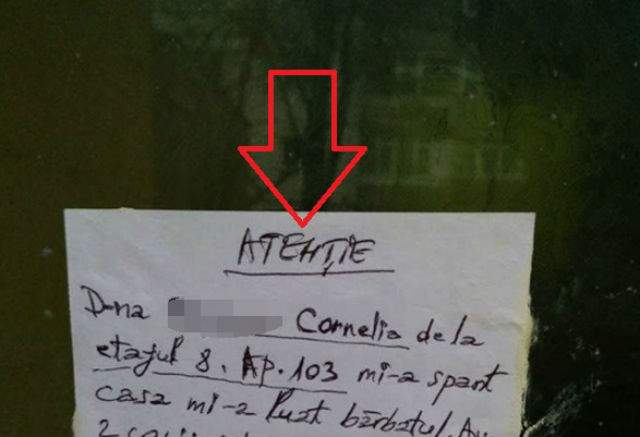 ATENȚIE
D-na Cornelia de la
etajul 8, AP. 103 mi-a spart
casa mi-a luat bărbatul. Au
2